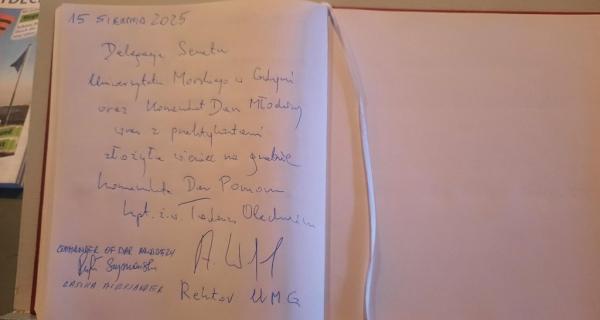 15 SIERPNIA 2025
Delegacja Senatu
Uniwersytetu Morskiego w Gdyni
oraz Komendant Dar Młodzieży
wraz z praktykantami
złożyła wieniec na grobie
Komendanta Dar Pomorza
kpt. ż.w. Tadeusz Olechnowicz
COMMANDER OF DAR MŁODZIEŻY
Rektor UMG